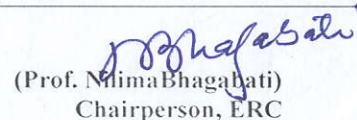 Bhagabati
(Prof. Nilima Bhagabati)
Chairperson, ERC